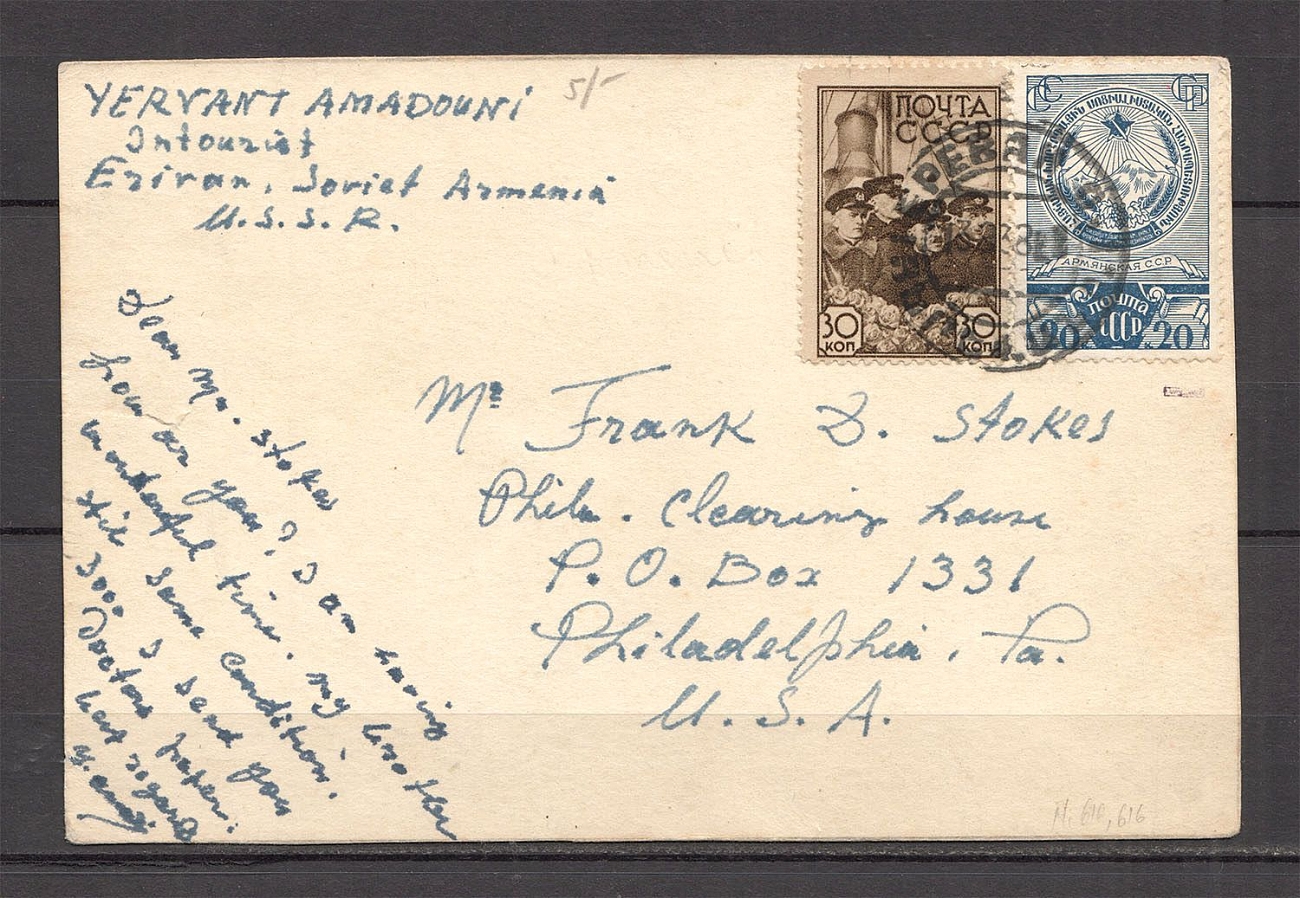 YERVANT AMADOUNI
Intourist
Erivan, Soviet Armenia
U.S.S.R.
5/-
ПОЧТА
СССР
30
КОП
30
КОП
АРМЯНСКАЯ ССР
ПОЧТА
СССР
20
20
Mr Frank D. Stokes
Phila. Clearing house
P.O. Box 1331
Philadelphia, Pa.
U.S.A.
Dear Mr. Stokes
how ar you? I am having
wonderful time. my brother
still same condition.
soon I send you
Doctors paper.
best regards
616